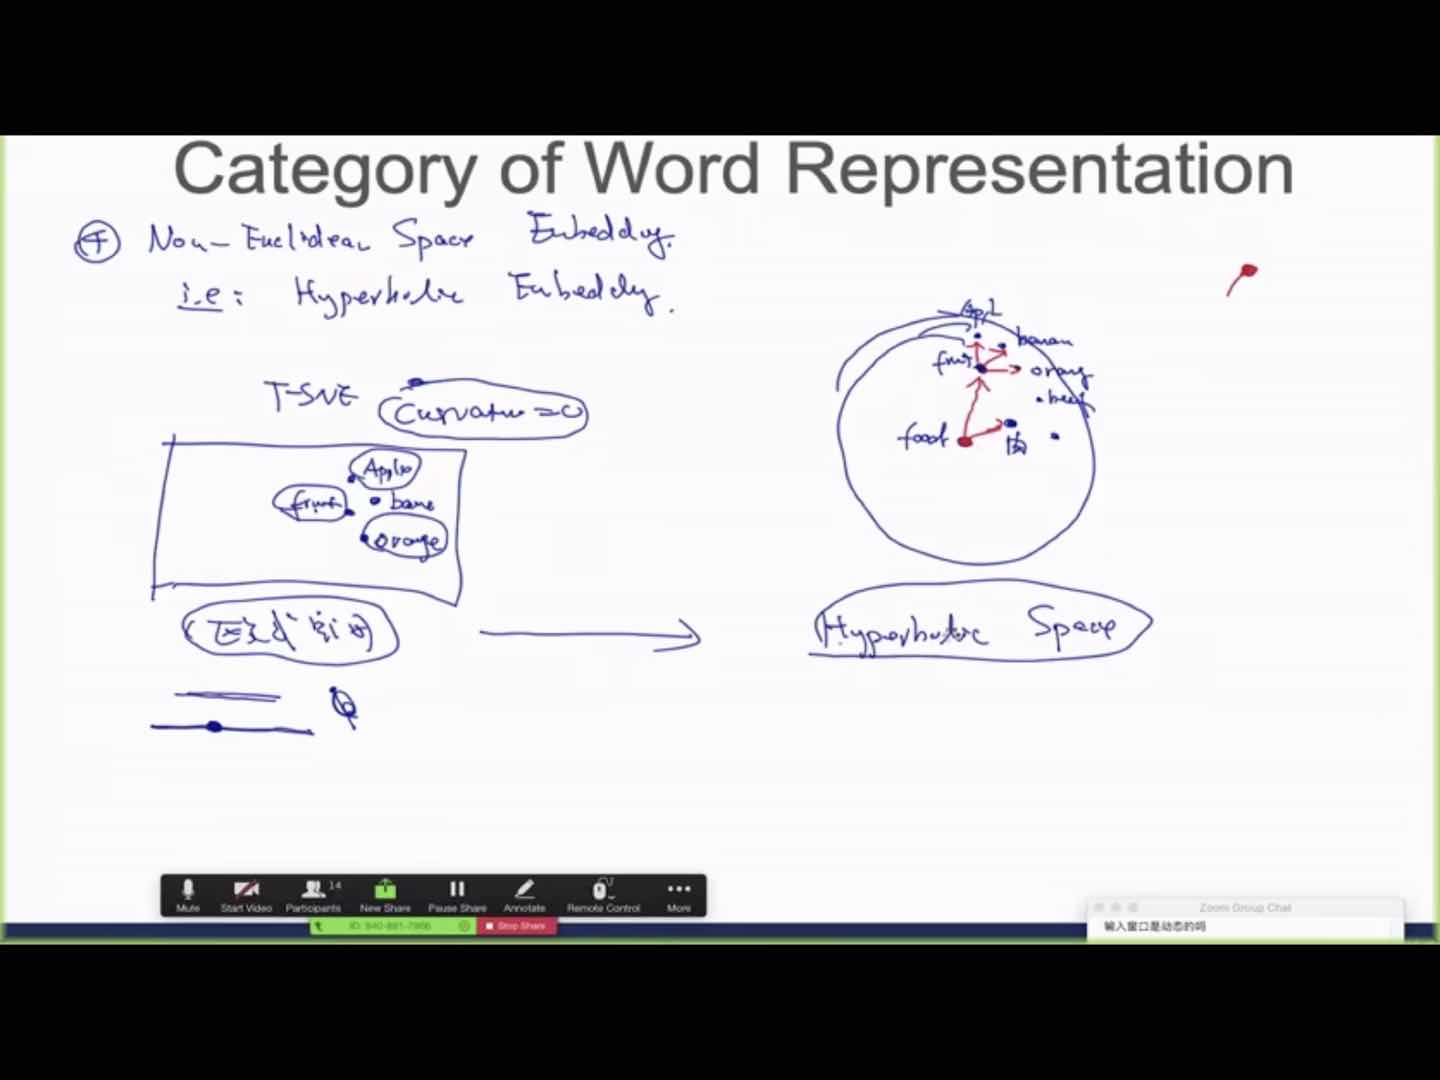 Category of Word Representation
④ Non-Euclidean Space Embedding.
i.e: Hyperbolic Embeddy.
T-SNE
Curvature =0
Apple
fruit
bana
orange
Appl
banan
fruit
orang
beef
food
肉
Hyperbolic Space
Mute
Start Video
Participants
14
New Share
Pause Share
Annotate
Remote Control
More
Stop Share
Zoom Group Chat
输入窗口是动态的吗